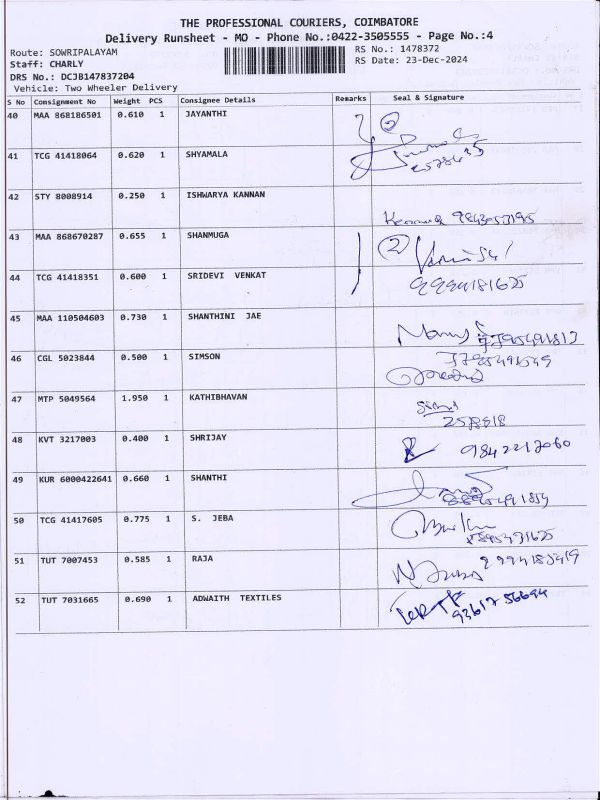 THE PROFESSIONAL COURIERS, COIMBATORE
Delivery Runsheet - MO - Phone No.:0422-3505555 - Page No.:4
Route: SOWRIPALAYAM
RS No.: 1478372
Staff: CHARLY
RS Date: 23-Dec-2024
DRS No.: DCJB147837204
Vehicle: Two Wheeler Delivery
S No Consignment No Weight PCS Consignee Details Remarks Seal & Signature
40 MAA 868186501 0.610 1 JAYANTHI 2
41 TCG 41418064 0.620 1 SHYAMALA
42 STY 8008914 0.250 1 ISHWARYA KANNAN
43 MAA 868670287 0.655 1 SHANMUGA 2
44 TCG 41418351 0.600 1 SRIDEVI VENKAT 9994181625
45 MAA 110504603 0.730 1 SHANTHINI JAE
46 CGL 5023844 0.500 1 SIMSON
47 MTP 5049564 1.950 1 KATHIBHAVAN
48 KVT 3217003 0.400 1 SHRIJAY 9842212060
49 KUR 6000422641 0.660 1 SHANTHI
50 TCG 41417605 0.775 1 S. JEBA
51 TUT 7007453 0.585 1 RAJA
52 TUT 7031665 0.690 1 ADWAITH TEXTILES 93617 56694